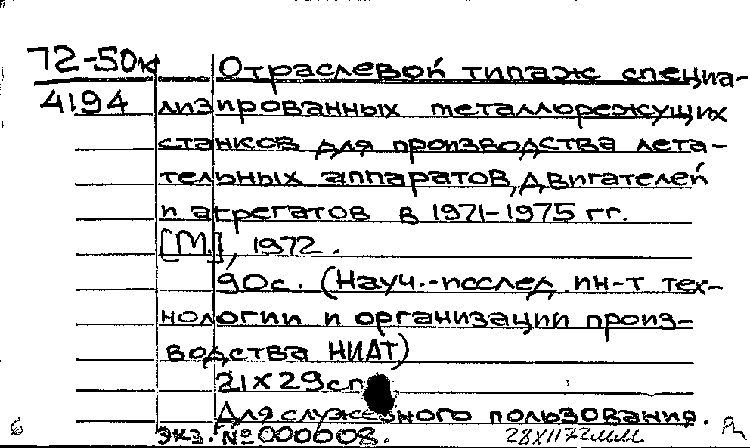 72-50к
4194
Отраслевой типаж специа-
лизированных металлорежущих
станков для производства лета-
тельных аппаратов, двигателей
и агрегатов в 1971-1975 гг.
[М.], 1972.
90с. (Науч.-исслед. ин-т тех-
нологии и организации произ-
водства НИАТ)
21х29см
Для служебного пользования.
экз. № 000008. 28XII72
6